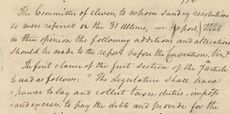 The Committee of eleven, to whom sundry resolutions
&c were referred on the 31st Ultimo, report that
in their opinion the following additions and alterations
should be made to the report before the Convention, viz
The first clause of the first section of the 7 article
to read as follows. "The Legislature shall have
power to lay and collect taxes, duties, imposts
and excises to pay the debts and provide for the